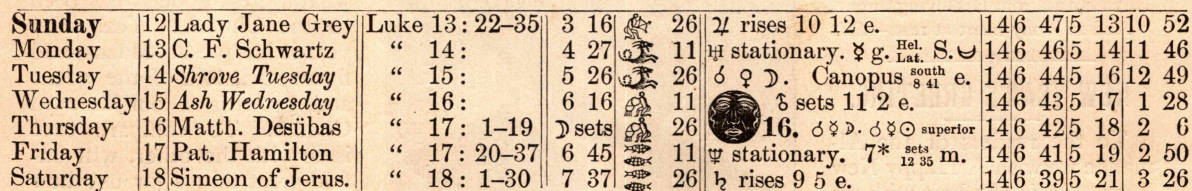 Sunday 12 Lady Jane Grey Luke 13: 22–35 3 16 26 ♃ rises 10 12 e. 14 6 47 5 13 10 52
Monday 13 C. F. Schwartz “ 14: 4 27 11 ♅ stationary. ☿ g. Hel. Lat. S. 14 6 46 5 14 11 46
Tuesday 14 Shrove Tuesday “ 15: 5 26 26 ☌ ♀ ☽. Canopus south 8 41 e. 14 6 44 5 16 12 49
Wednesday 15 Ash Wednesday “ 16: 6 16 11 sets 11 2 e. 14 6 43 5 17 1 28
Thursday 16 Matth. Desübas “ 17: 1–19 ☽ sets 26 16. ☌ ☿ ☽. ☌ ☿ ☉ superior 14 6 42 5 18 2 6
Friday 17 Pat. Hamilton “ 17: 20–37 6 45 11 ♆ stationary. 7* sets 12 35 m. 14 6 41 5 19 2 50
Saturday 18 Simeon of Jerus. “ 18: 1–30 7 37 26 ♄ rises 9 5 e. 14 6 39 5 21 3 26